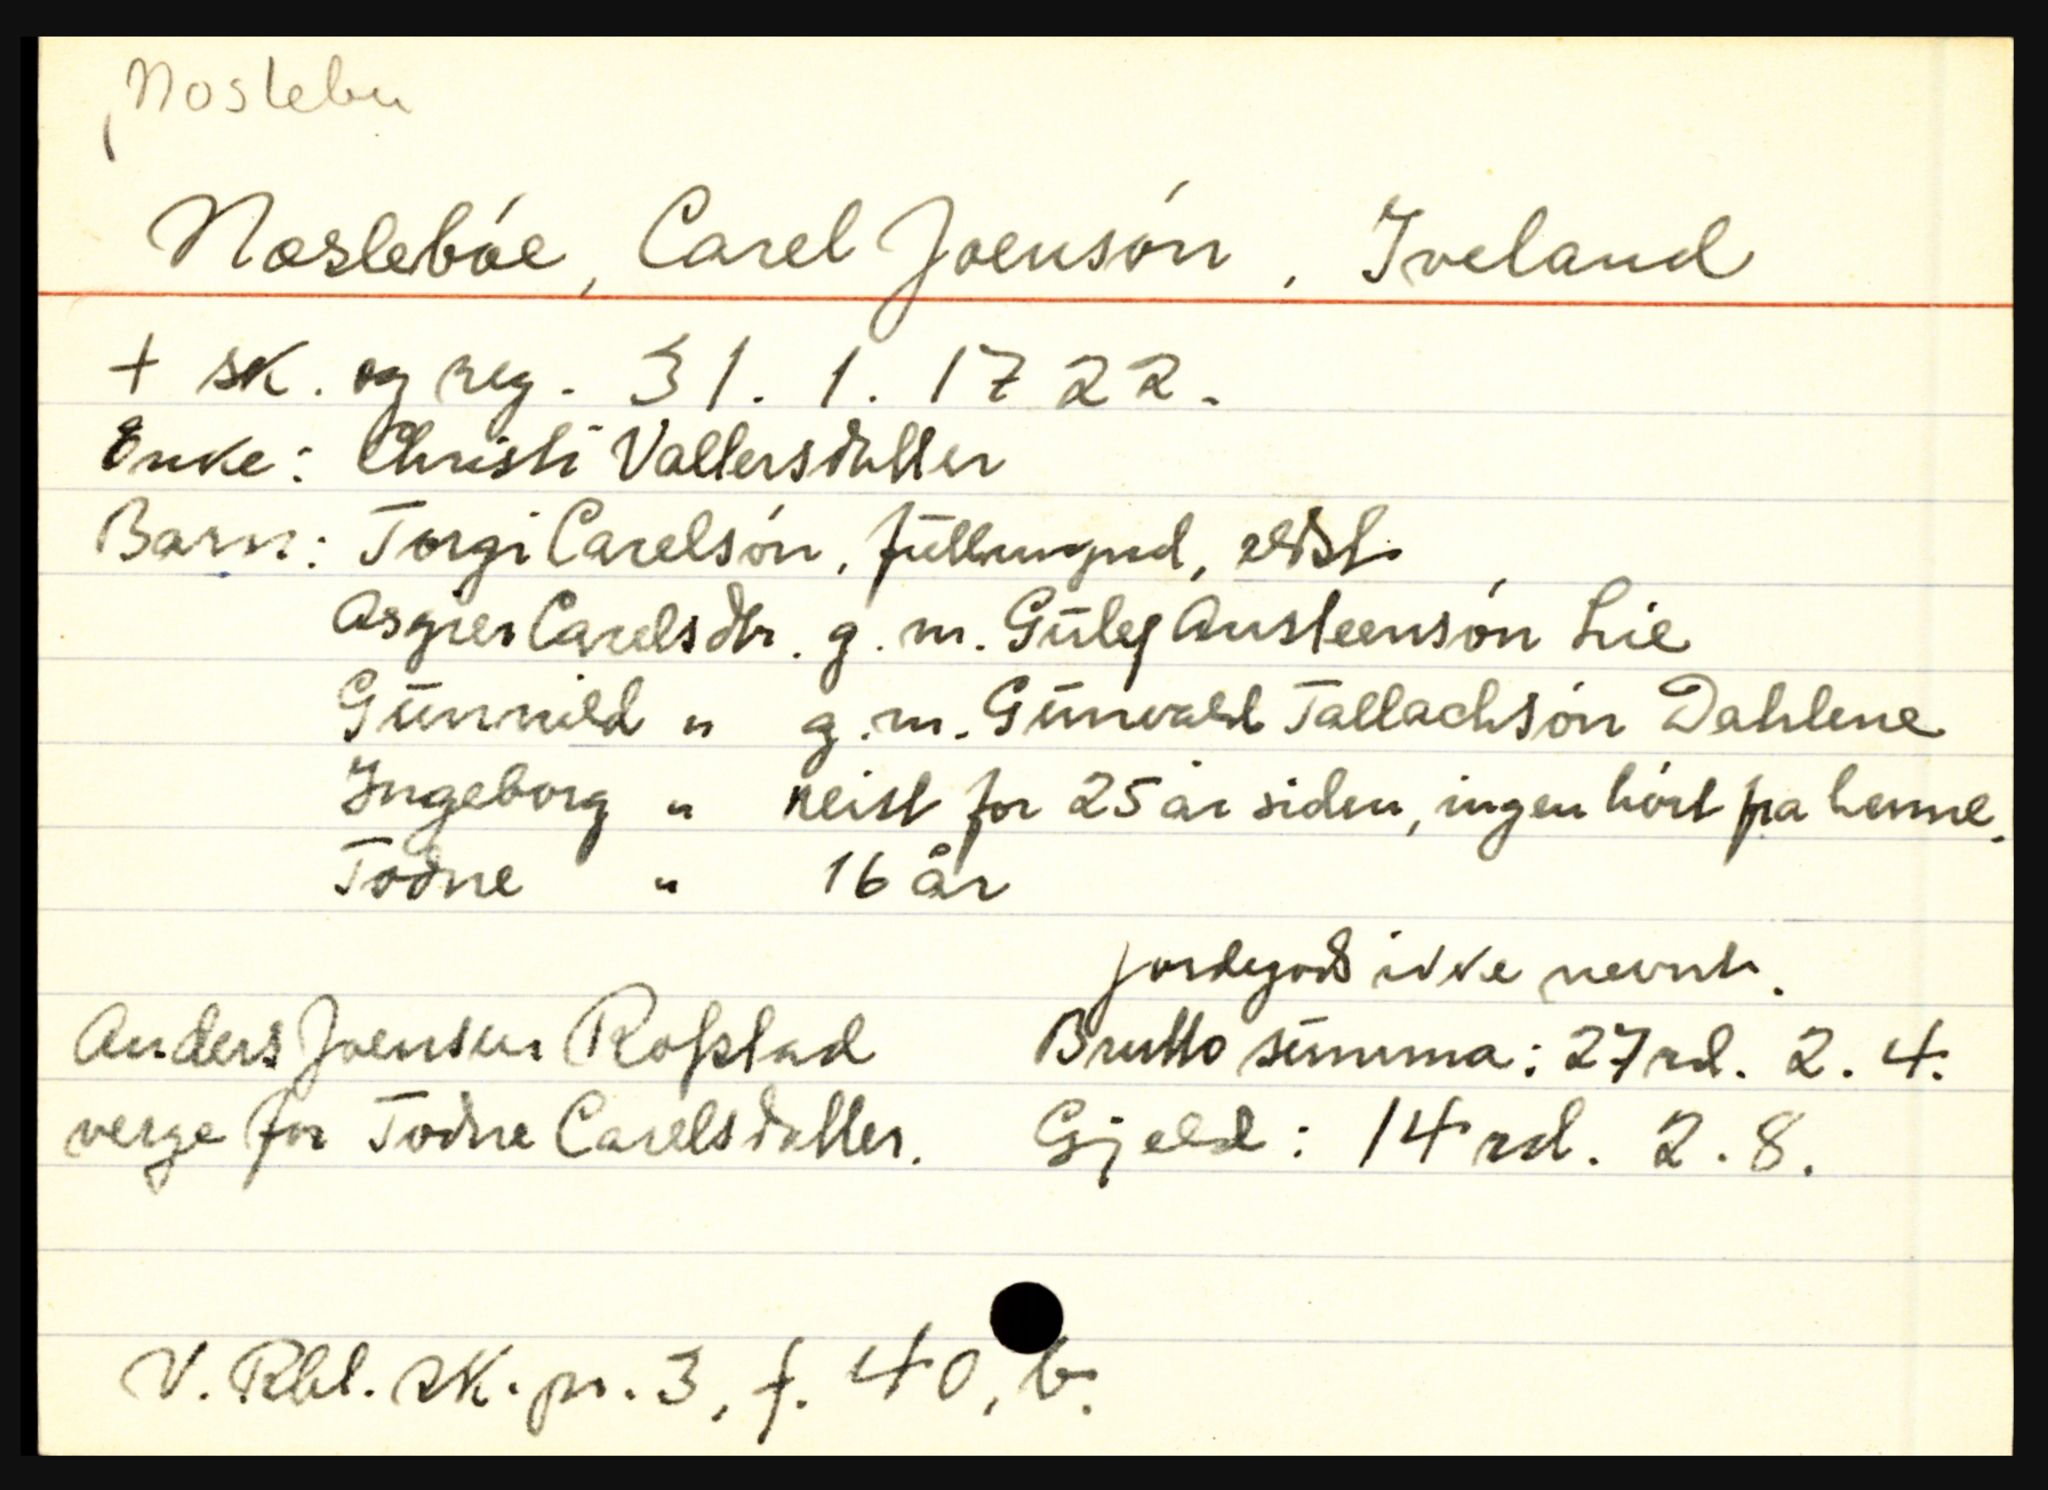 Noslebu
Nosleböe, Carel Joensón, Iveland
+ sk. og reg. 31. 1. 1722.
Enke: Christi Vallersdatter
Barn: Torgi Carelsón, fullmynd, eldst
Asgier Carelsdtr. g. m. Gŭlef Austeensón Lie
Gŭnnild " g. m. Gŭnvald Tallachsón Dahlene
Ingeborg " reist for 25 år siden, ingen hórt fra henne.
Todne " 16 år
jordegods ikke nevnt.
Anders Joensen Roßtad Brutto sŭmma: 27 rd. 2. 4.
verge for Todne Carelsdatter. Gjeld: 14 rd. 2. 8.
V. Rbl. sk. pr. 3, f. 40, b.